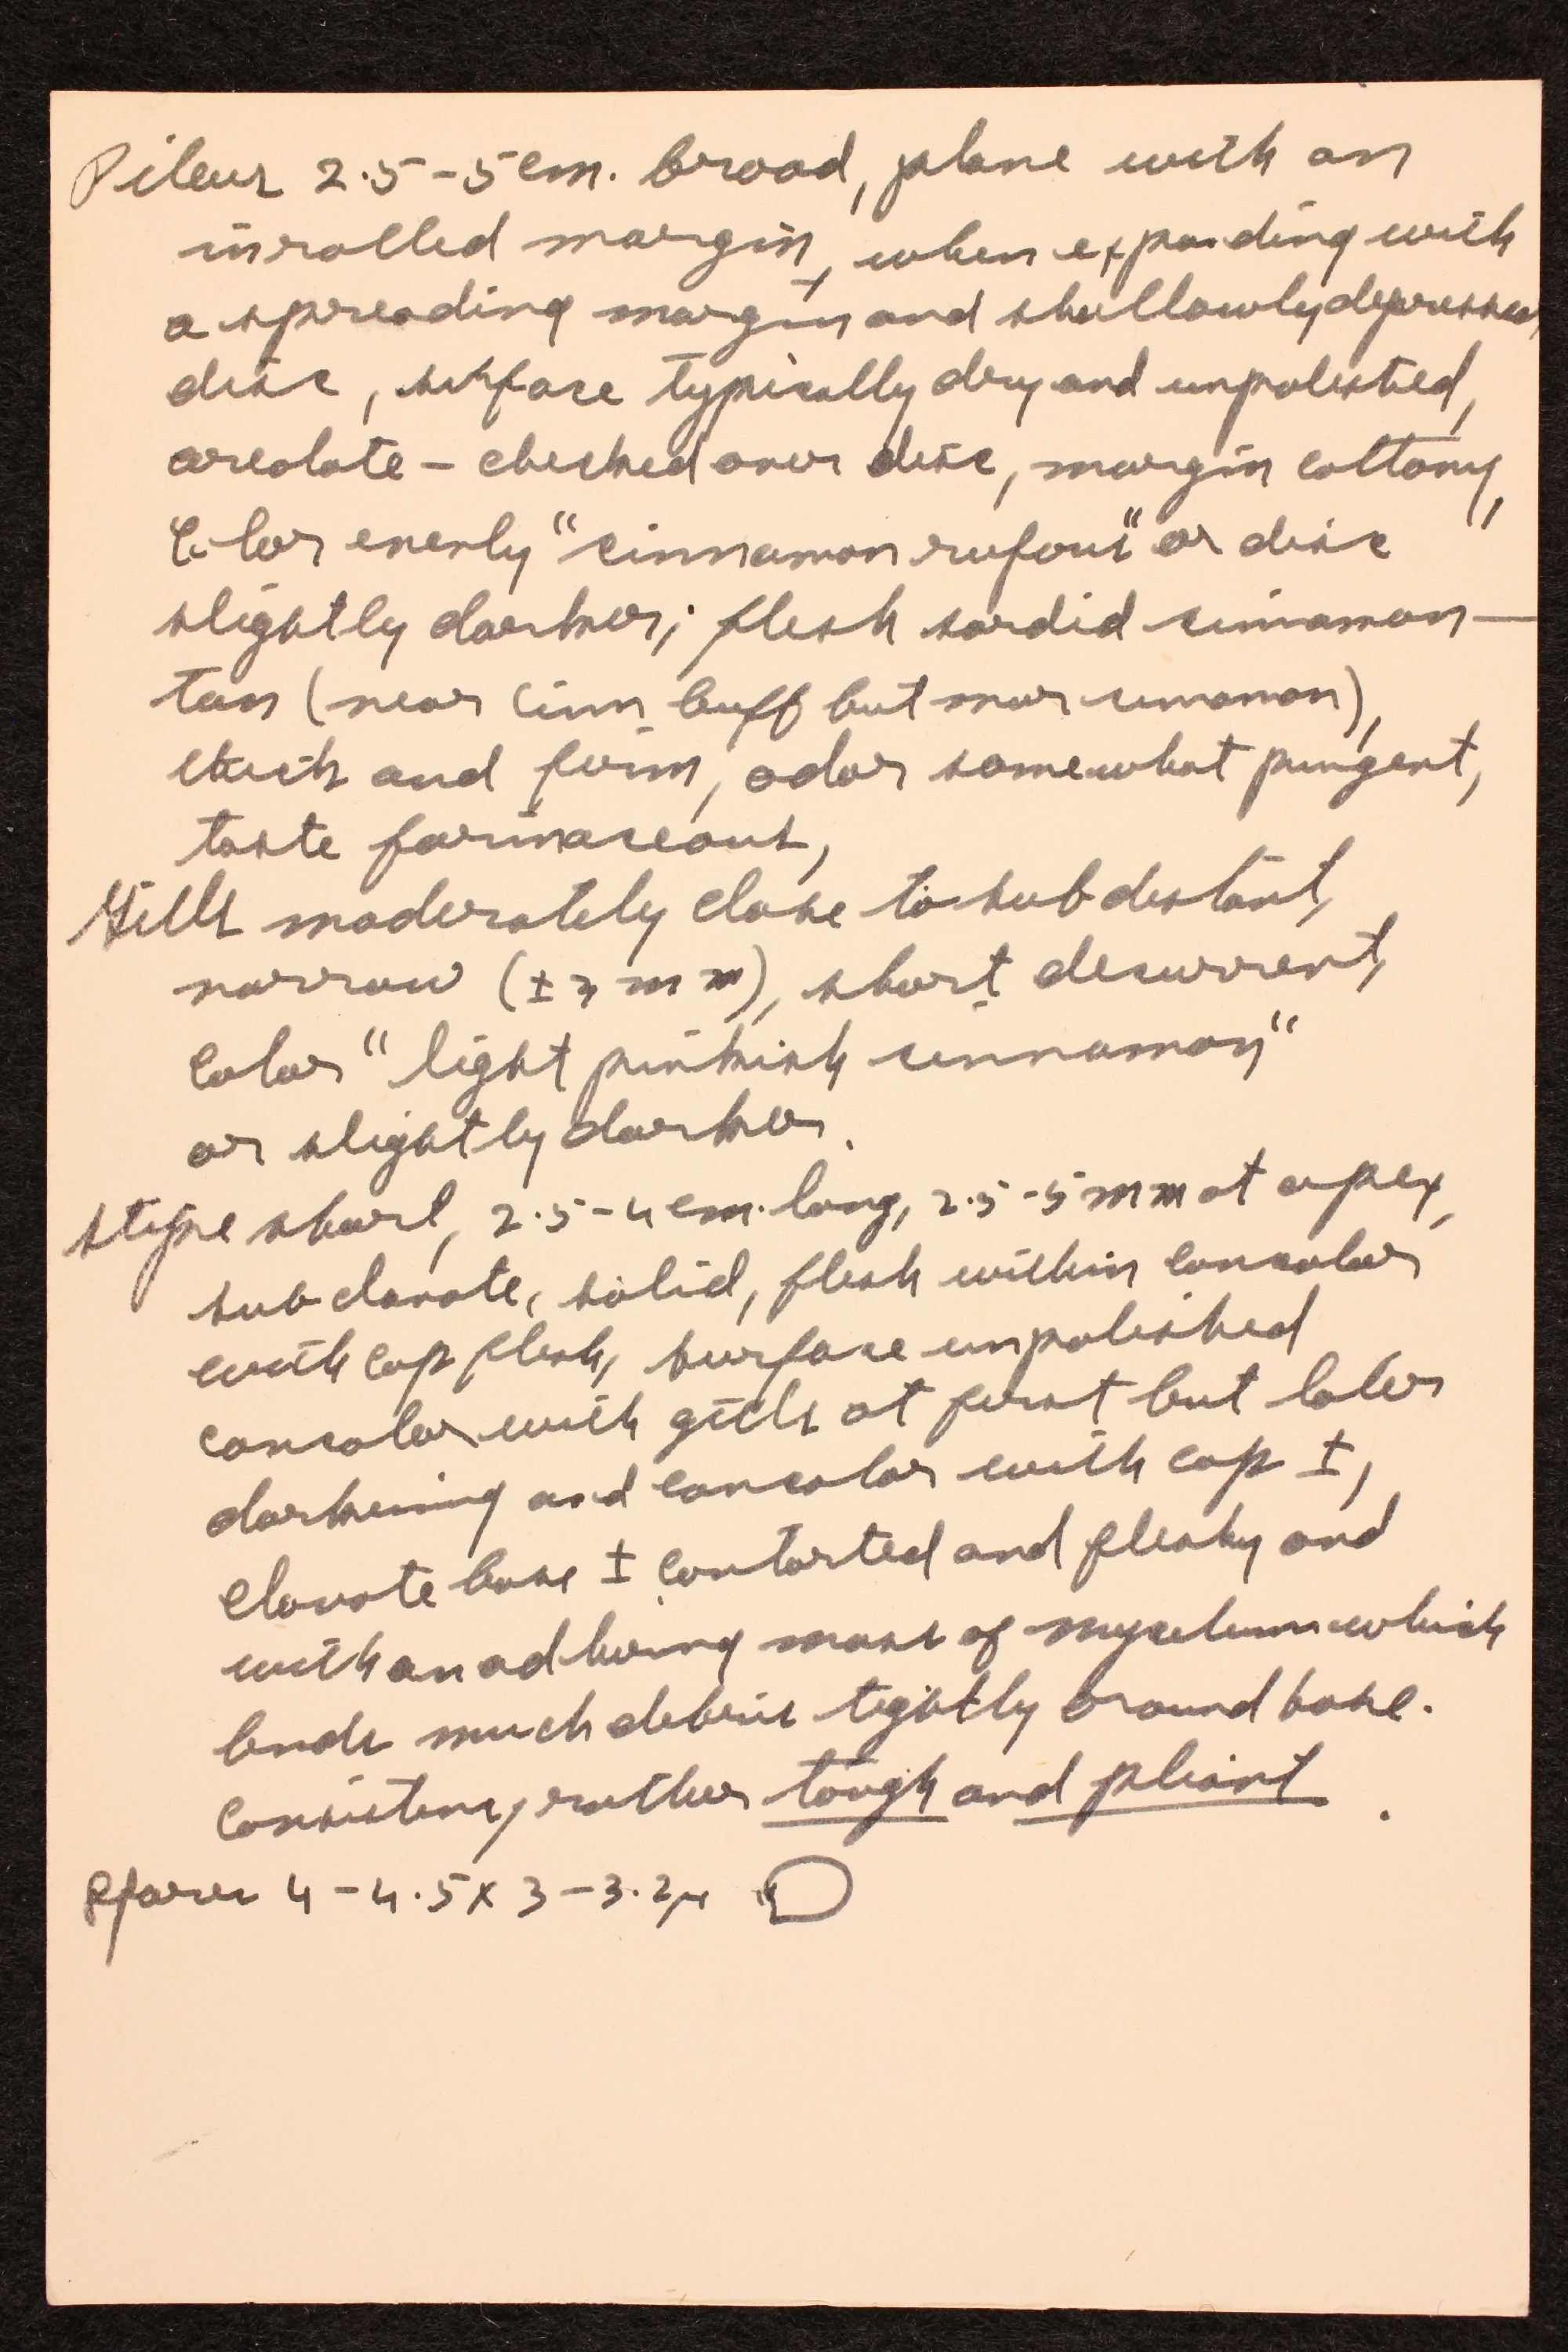 Pileus 2.5-5 cm. broad, plane with an
inrolled margin, when expanding with
a spreading margin and shallowly depressed
disc, surface typically dry and unpolished,
areolate-checked over disc, margin cottony,
Color evenly "cinnamon rufous" or disc
slightly darker; flesh sordid cinnamon-
tan (near Cinn buff but more cinnamon),
thick and firm, odor somewhat pungent,
taste farinaceous,
Gills moderately close to subdistant,
narrow (± 3 mm), short decurrent,
Color "light pinkish cinnamon"
or slightly darker.
Stipe short, 2.5-4 cm. long, 2.5-5 mm at apex,
subclavate, solid, flesh within concolor
with cap flesh, surface unpolished
concolor with gills at first but later
darkening and concolor with cap ±,
clavate base ± contorted and fleshy and
with an adhering mass of mycelium which
binds much debris tightly around base.
Consistency rather tough and pliant.
Spores 4-4.5 x 3-3.2 µ